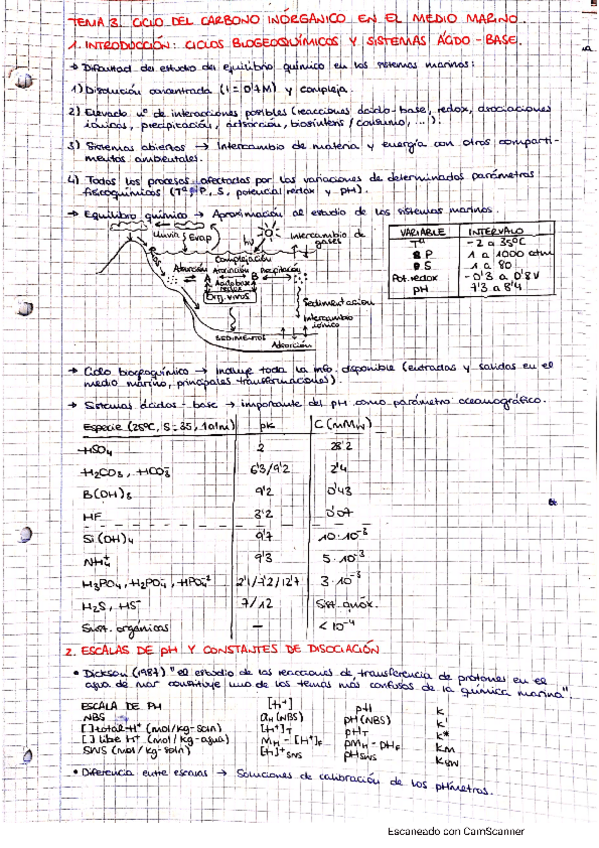 TEMA 3. CICLO DEL CARBONO INORGANICO EN EL MEDIO MARINO.
1. INTRODUCCIÓN: CICLOS BIOGEOQUÍMICOS Y SISTEMAS ÁCIDO-BASE.
→ Dificultad del estudio del equilibrio químico en los sistemas marinos:
1) Disolución concentrada (I = 0'7M) y compleja.
2) Elevado nº de interacciones posibles (reacciones ácido-base, redox, asociaciones
iónicas, precipitación, adsorción, biosíntesis / consumo, ...).
3) Sistemas abiertos → Intercambio de materia y energía con otros comparti-
mentos ambientales.
4) Todos los procesos afectados por las variaciones de determinados parámetros
fisicoquímicos (Tª, P, S, potencial redox y pH).
→ Equilibrio químico → Aproximación al estudio de los sistemas marinos.
lluvia Evap hν intercambio de
gases
Complejación
Absorción Asociación Precipitación
A B
Acido base
redox
Org. vivos
Sedimentacion
Intercambio
iónico
SEDIMENTOS
Adsorción
VARIABLE INTERVALO
Tª -2 a 35ºC
P 1 a 1000 atm
S 1 a 80
Pot. redox -0'3 a 0'8V
pH 7'3 a 8'4
→ Ciclo biogeoquímico → Incluye toda la info. disponible (entradas y salidas en el
medio marino, principales transformaciones).
→ Sistemas ácidos-base → importante del pH como parámetro oceanográfico.
Especie (25ºC, S=35, 1atm) pK C (mMw)
HSO4 2 28'2
H2CO3, HCO3- 6'3/9'2 2'4
B(OH)3 9'2 0'43
HF 3'2 0'07
Si(OH)4 9'7 10·10-3
NH4+ 9'3 5·10-3
H3PO4, H2PO4-, HPO4-2 2'1/7'2/12'7 3·10-3
H2S, HS- 7/12 Sist. anóx.
Sust. orgánicas — <10-4
2. ESCALAS DE pH Y CONSTANTES DE DISOCIACIÓN
• Dickson (1987) "el estudio de las reacciones de transferencia de protones en el
agua de mar constituye uno de los temas más confusos de la química marina".
ESCALA DE PH [H+] pH K
NBS aH (NBS) pH (NBS) K'
[ ] total H+ (mol/kg-soln) [H+]T pHT K*
[ ] libre H+ (mol/kg-agua) mH - [H+]F pMH - pHF KM
SWS (mol/kg-soln) [H]+SWS pHSWS KSW
• Diferencia entre escalas → Soluciones de calibración de los pHmetros.
Escaneado con CamScanner